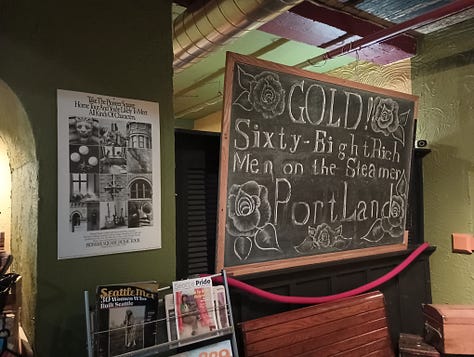 Take The Pioneer Square
Home Tour And You're Likely To Meet
All Kinds Of Characters.
PIONEER SQUARE HOME TOUR
GOLD!
Sixty-Eight Rich
Men on the Steamer
PortLand
Seattle Met
30 Women Who
Built Seattle
Seattle
Pride